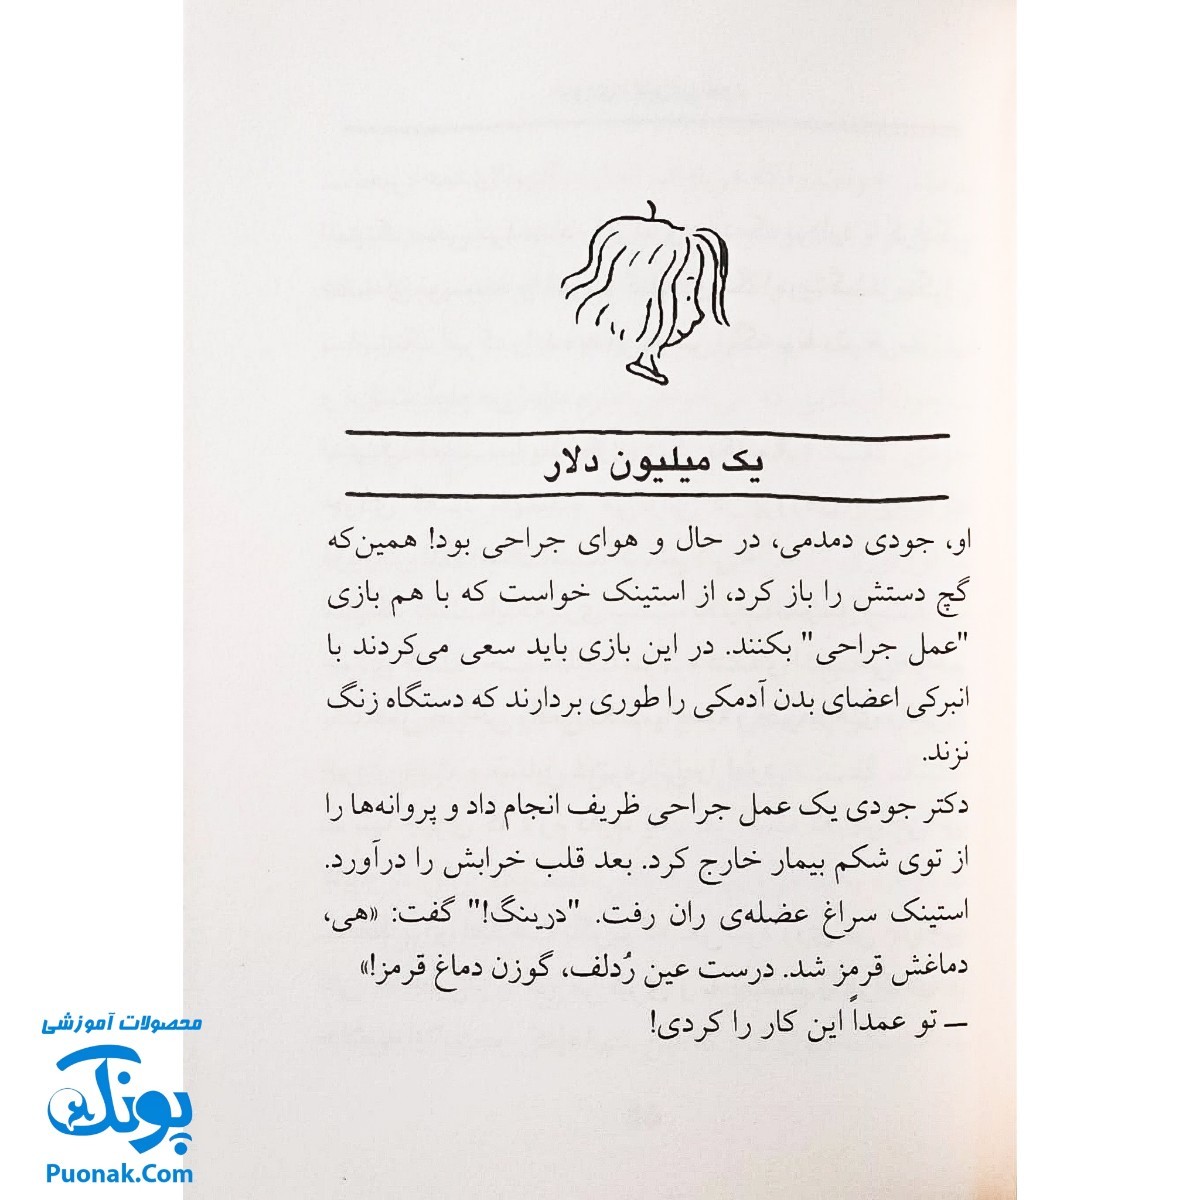 یک میلیون دلار
او، جودی دمدمی، در حال و هوای جراحی بود! همین‌که
گچ دستش را باز کرد، از استینک خواست که با هم بازی
"عمل جراحی" بکنند. در این بازی باید سعی می‌کردند با
انبرکی اعضای بدن آدمکی را طوری بردارند که دستگاه زنگ
نزند.
دکتر جودی یک عمل جراحی ظریف انجام داد و پروانه‌ها را
از توی شکم بیمار خارج کرد. بعد قلب خرابش را درآورد.
استینک سراغ عضله‌ی ران رفت. "درینگ!" گفت: «هی،
دماغش قرمز شد. درست عین رُدلف، گوزن دماغ قرمز!»
— تو عمداً این کار را کردی!
محصولات آموزشی
پونک
Puonak.Com